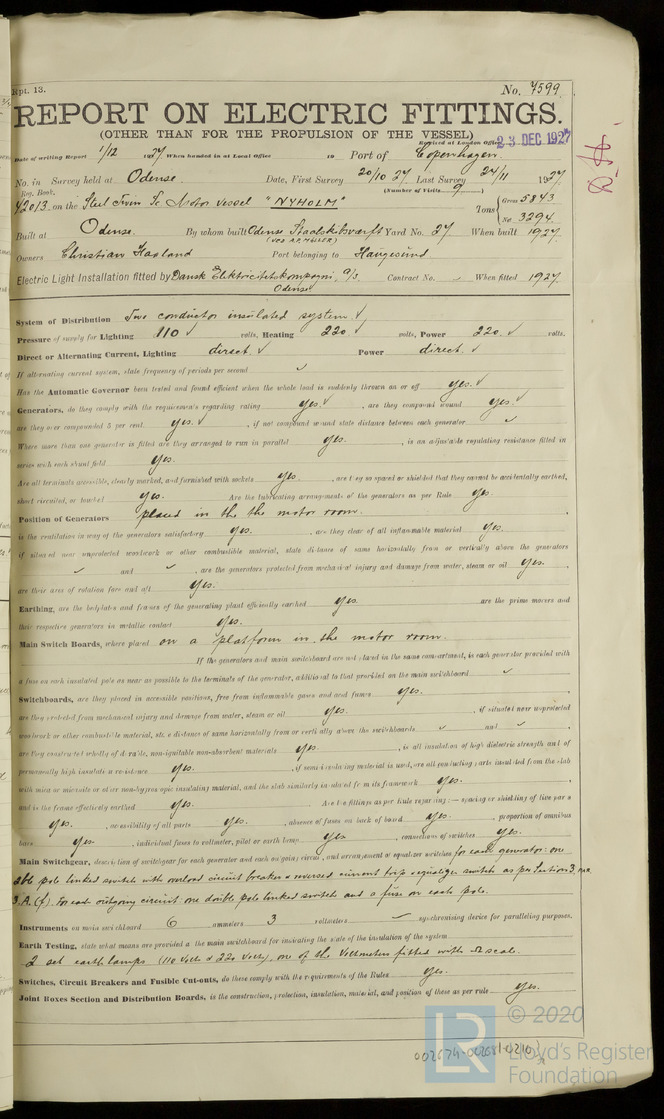 Rpt. 13.
No. 7599
REPORT ON ELECTRIC FITTINGS.
(OTHER THAN FOR THE PROPULSION OF THE VESSEL)
Received at London Office 23 DEC 1927
Date of writing Report 1/12 1927 When handed in at Local Office 19 Port of Copenhagen
No. in Survey held at Odense Date, First Survey 20/10 27 Last Survey 24/11 1927
Reg. Book. (Number of Visits 9)
42013 on the Steel Twin Sc Motor vessel "NYHOLM" Tons Gross 5843
Net 3294
Built at Odense. By whom built Odense Staalskibsværft Yard No. 27 When built 1927
(ved A.P. MÖLLER)
Owners Christian Haaland Port belonging to Haugesund
Electric Light Installation fitted by Dansk Elektricitetskompagni, A/S. Contract No. - When fitted 1927.
Odense
System of Distribution Two conductor insulated system. ✓
Pressure of supply for Lighting 110 ✓ volts, Heating 220 ✓ volts, Power 220 ✓ volts.
Direct or Alternating Current, Lighting direct ✓ Power direct. ✓
If alternating current system, state frequency of periods per second ✓
Has the Automatic Governor been tested and found efficient when the whole load is suddenly thrown on or off yes. ✓
Generators, do they comply with the requirements regarding rating yes. ✓, are they compound wound yes. ✓
are they over compounded 5 per cent. yes. ✓, if not compound wound state distance between each generator ✓
Where more than one generator is fitted are they arranged to run in parallel yes., is an adjustable regulating resistance fitted in
series with each shunt field yes.
Are all terminals accessible, clearly marked, and furnished with sockets yes., are they so spaced or shielded that they cannot be accidentally earthed,
short circuited, or touched yes. Are the lubricating arrangements of the generators as per Rule yes.
Position of Generators placed in the the motor room.
is the ventilation in way of the generators satisfactory yes., are they clear of all inflammable material yes.
if situated near unprotected woodwork or other combustible material, state distance of same horizontally from or vertically above the generators
✓ and ✓, are the generators protected from mechanical injury and damage from water, steam or oil yes.
are their axes of rotation fore and aft yes.
Earthing, are the bedplates and frames of the generating plant efficiently earthed yes. are the prime movers and
their respective generators in metallic contact yes.
Main Switch Boards, where placed on a platform in the motor room.
If the generators and main switchboard are not placed in the same compartment, is each generator provided with
a fuse on each insulated pole as near as possible to the terminals of the generator, additional to that provided on the main switchboard ✓
Switchboards, are they placed in accessible positions, free from inflammable gases and acid fumes yes.
are they protected from mechanical injury and damage from water, steam or oil yes., if situated near unprotected
woodwork or other combustible material, state distance of same horizontally from or vertically above the switchboards ✓ and ✓
are they constructed wholly of durable, non-ignitable non-absorbent materials yes., is all insulation of high dielectric strength and of
permanently high insulation resistance yes., if semi-insulating material is used, are all conducting parts insulated from the slab
with mica or micanite or other non-hygroscopic insulating material, and the slab similarly insulated from its framework yes.
and is the frame effectively earthed yes. Are the fittings as per Rule regarding:— spacing or shielding of live parts
yes., accessibility of all parts yes., absence of fuses on back of board yes., proportion of omnibus
bars yes., individual fuses to voltmeter, pilot or earth lamp yes, connections of switches yes.
Main Switchgear, description of switchgear for each generator and each outgoing circuit, and arrangement of equalizer switches for each generator: one
dble pole linked switch with overload circuit breaker & reversed current trip & equalizer switch as per Section 3, PAR.
3.A. (f). For each outgoing circuit one double pole linked switch and a fuse on each pole.
Instruments on main switchboard 6 ammeters 3 voltmeters ✓ synchronising device for paralleling purposes.
Earth Testing, state what means are provided at the main switchboard for indicating the state of the insulation of the system
2 set earthlamps (110 Volts & 220 Volts), one of the Voltmeters fitted with Ω scale.
Switches, Circuit Breakers and Fusible Cut-outs, do these comply with the requirements of the Rules yes.
Joint Boxes Section and Distribution Boards, is the construction, protection, insulation, material, and position of these as per rule yes.
© 2020
LR Lloyd's Register
Foundation